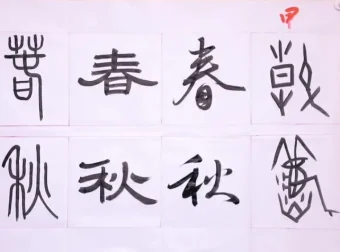 甲
春 春 春 春
秋 秋 秋 秋